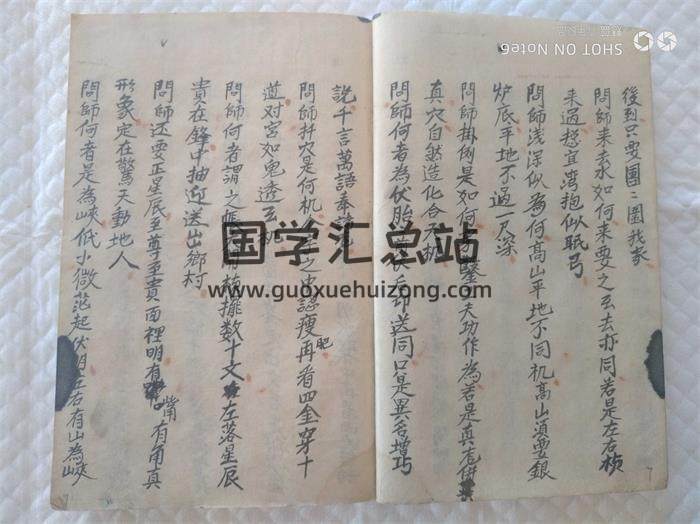 後到只要團二圍我家
問師來去水如何來要之玄去亦同若是左右槓
來過想宜湾抱似眠弓
問師浅深似為何高山平地不同机高山須要銀
炉底平地不過一尺深
問師掛倒是如何 鑿夫功作為若是真
真穴自然造化合天机
問師何者為伏胎 送同只是異名增巧
說千言萬語奉
問師扦穴是何机 之中認瘦肥再看四金穿十
道对宮如鬼透玄机
問師何者謂之帳 擺数十丈左落星辰
貴在鋒中抽迎送出鄉村
問師还要正星辰至尊至貴面裡明有 嘴有角真
形象定在驚天動地人
問師何者是為峽低小微茫起伏明左右有山為峽
SHOT ON NOTE6
国学汇总站
www.guoxuehuizong.com
7